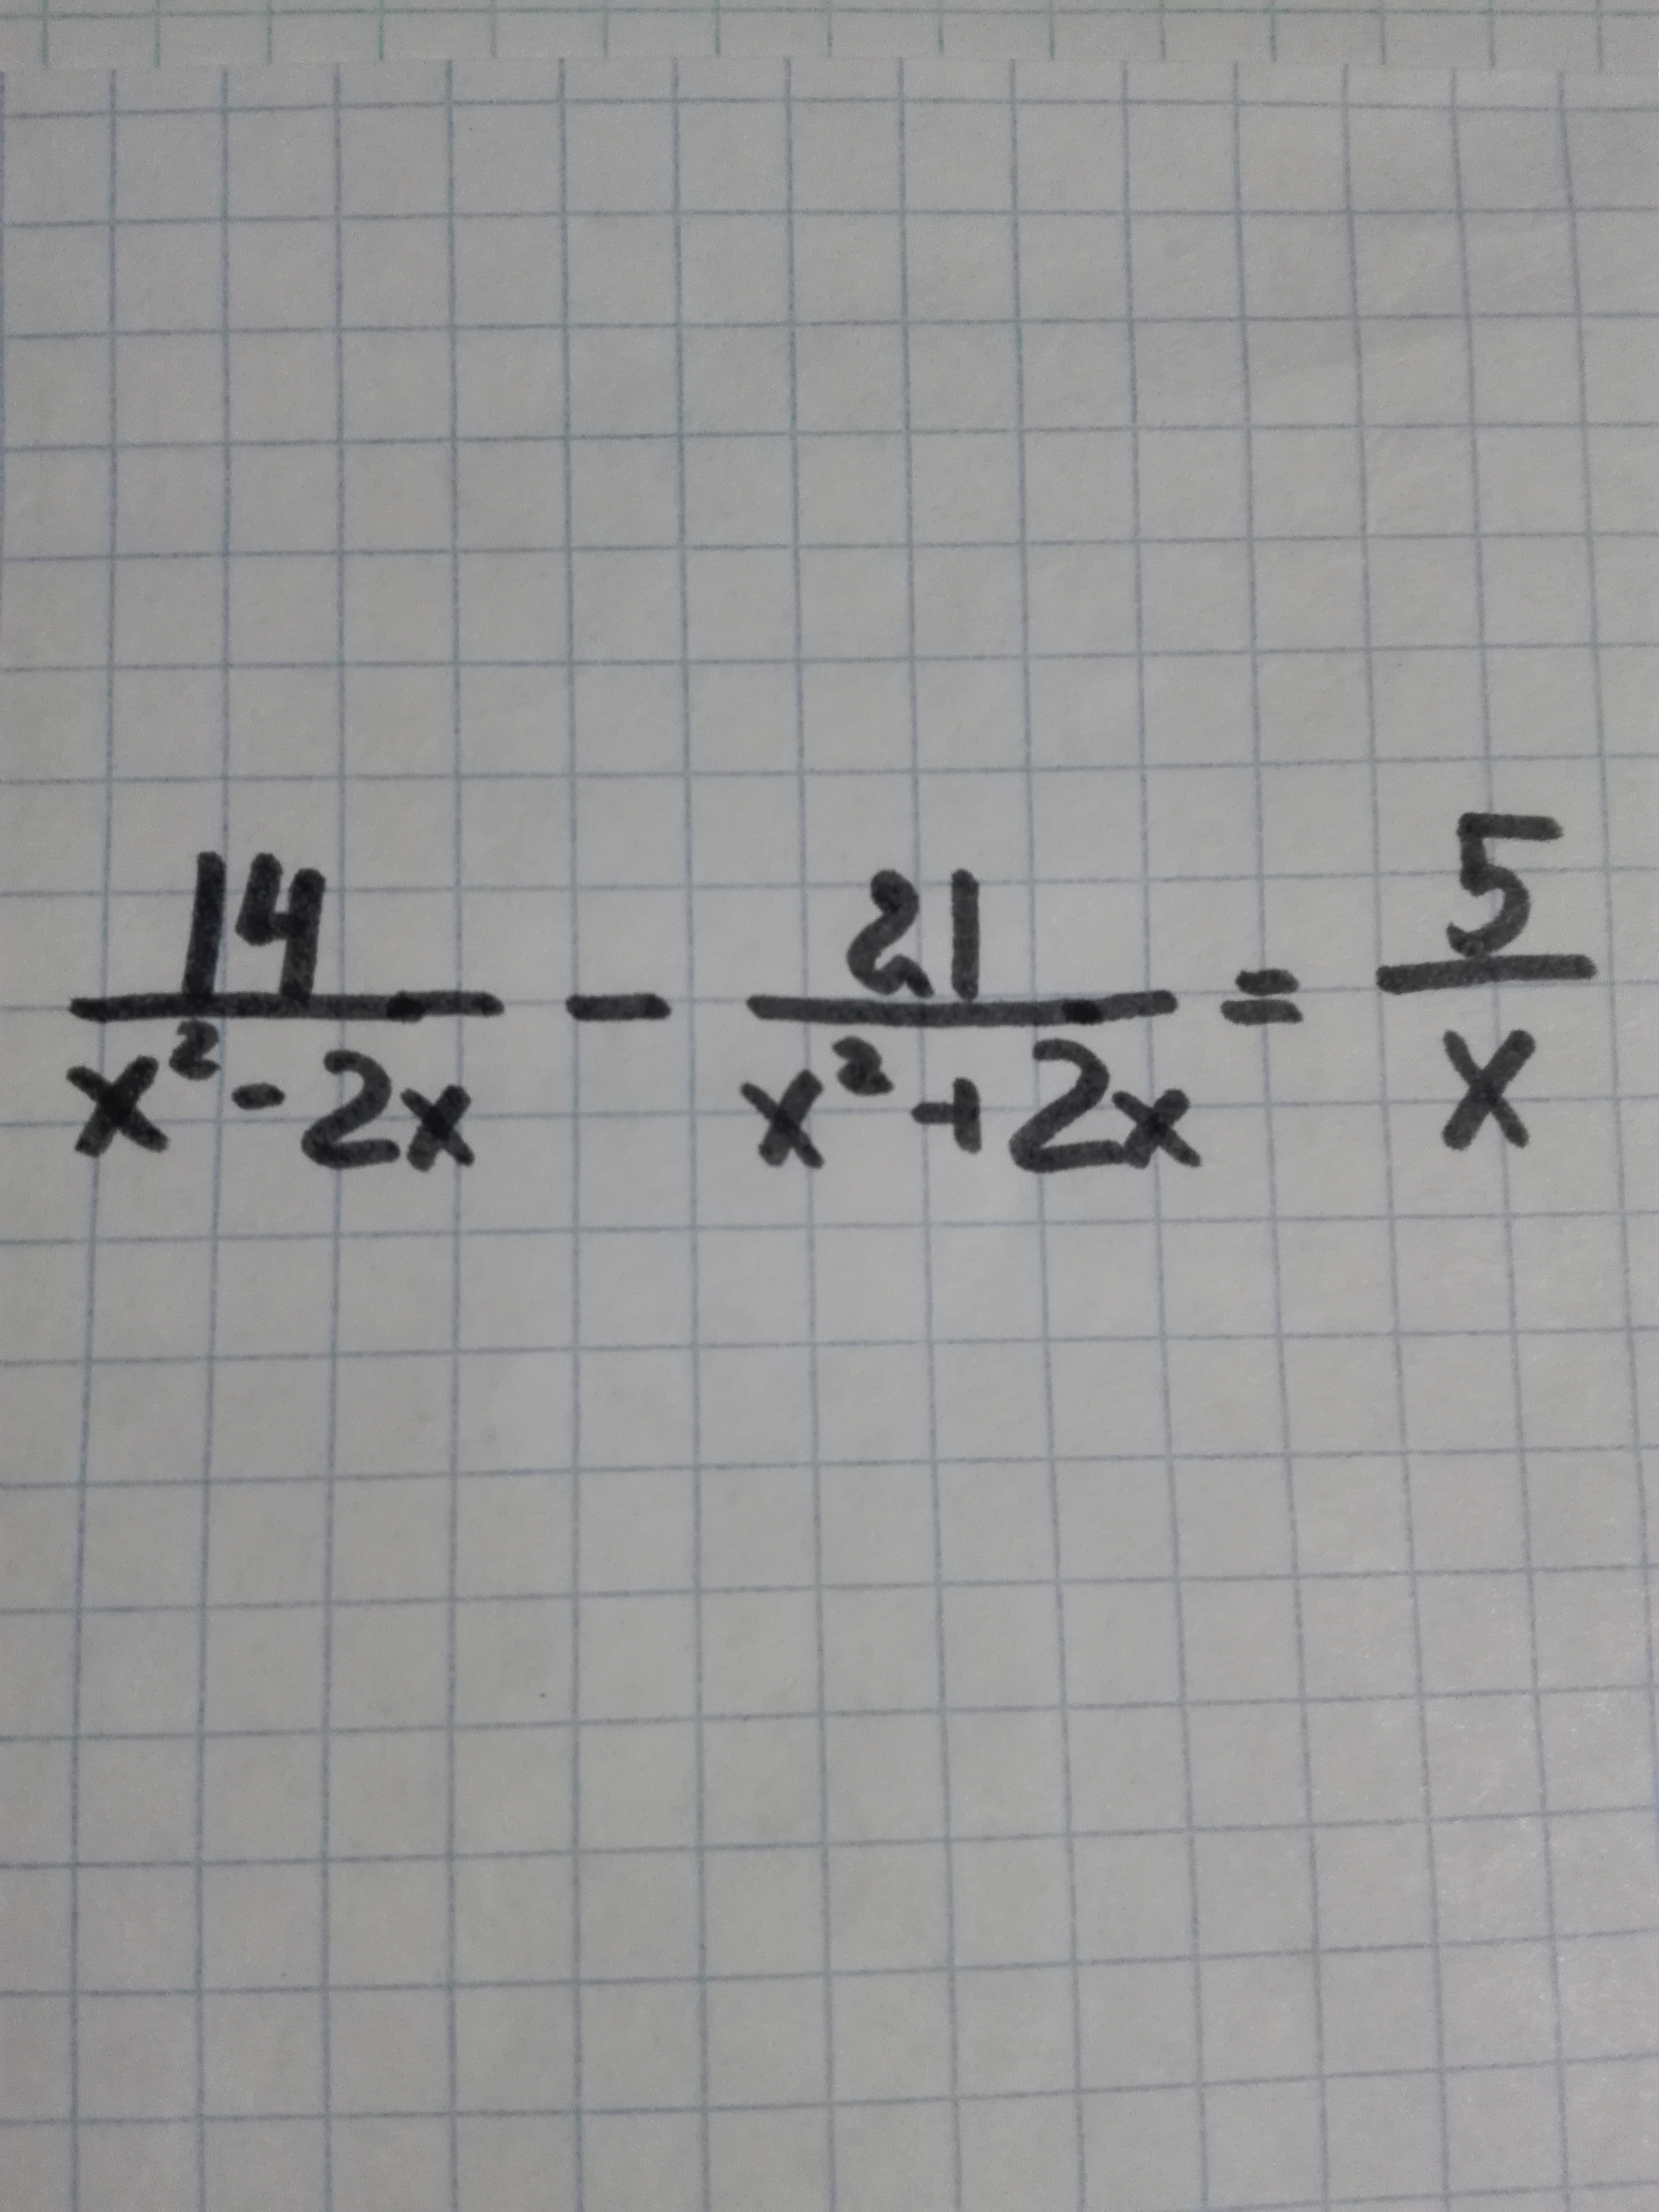 14/(x² - 2x) - 21/(x² + 2x) = 5/x